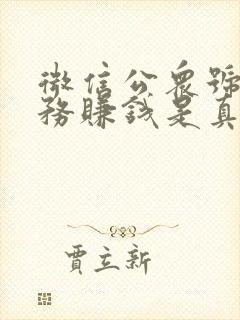 微信公众號
務賺錢是真
賈立新